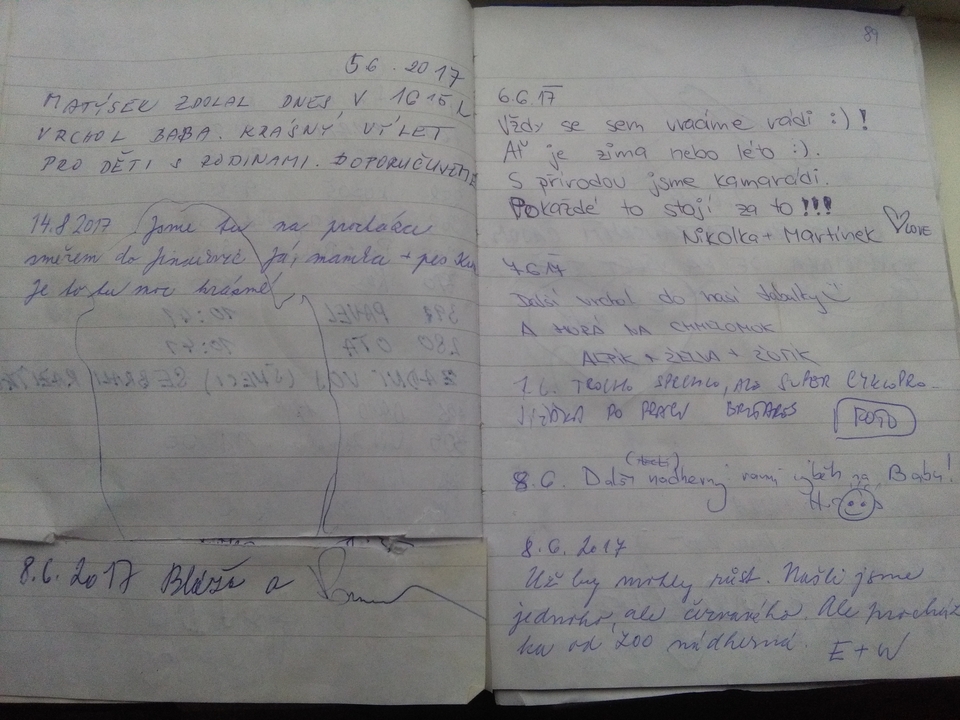 5 6 . 2017
MATÝSEK ZDOLAL DNES V 16 15
VRCHOL BABA. KRÁSNÝ VÝLET
PRO DĚTI S RODINAMI. DOPORUČUJEME
14.8 2017 Jsme tu na procházce
směrem do Jinačovic Já, mamka + pes
Je to tu moc krásné
8.6. 2017 Bláža a
89
6.6.17
Vždy se sem vracíme rádi :) !
Ať je zima nebo léto :).
S přírodou jsme kamarádi.
Pokaždé to stojí za to !!!
Nikolka + Martínek LOVE
7.6.17
Další vrchol do naší tabulky
A HURÁ NA
ALPÍK + ŽELVA + ŽOTÍK
7.6. TROCHU SPECHU, ALE SUPER CYKLOPRO-
JÍŽĎKA PO PRACI
FOTO
8.6. Další nádherný ranní výběh na Babu!
8. 6. 2017
Už by mohly růst. Našli jsme
jednoho, ale červavého. Ale procház
ka od ZOO nádherná. E + W